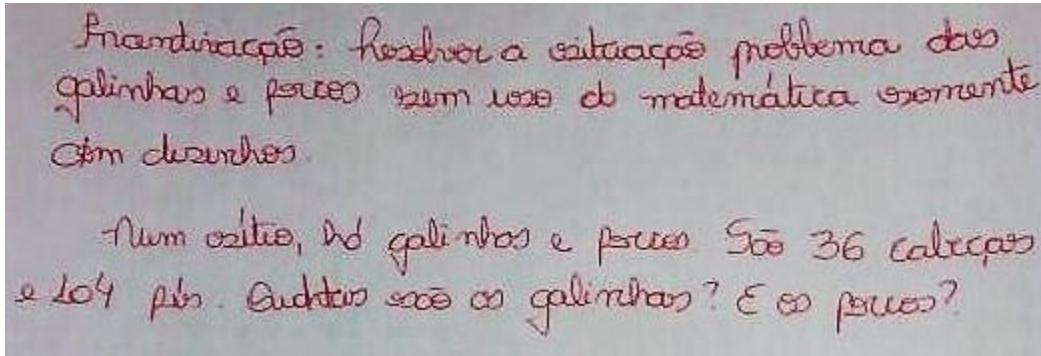 Resolver a situação problema das
galinhas e porcos sem uso da matemática somente
com desenhos.
Num sítio, há galinhas e porcos São 36 cabeças
e 104 pés. Quantas são as galinhas? E os porcos?